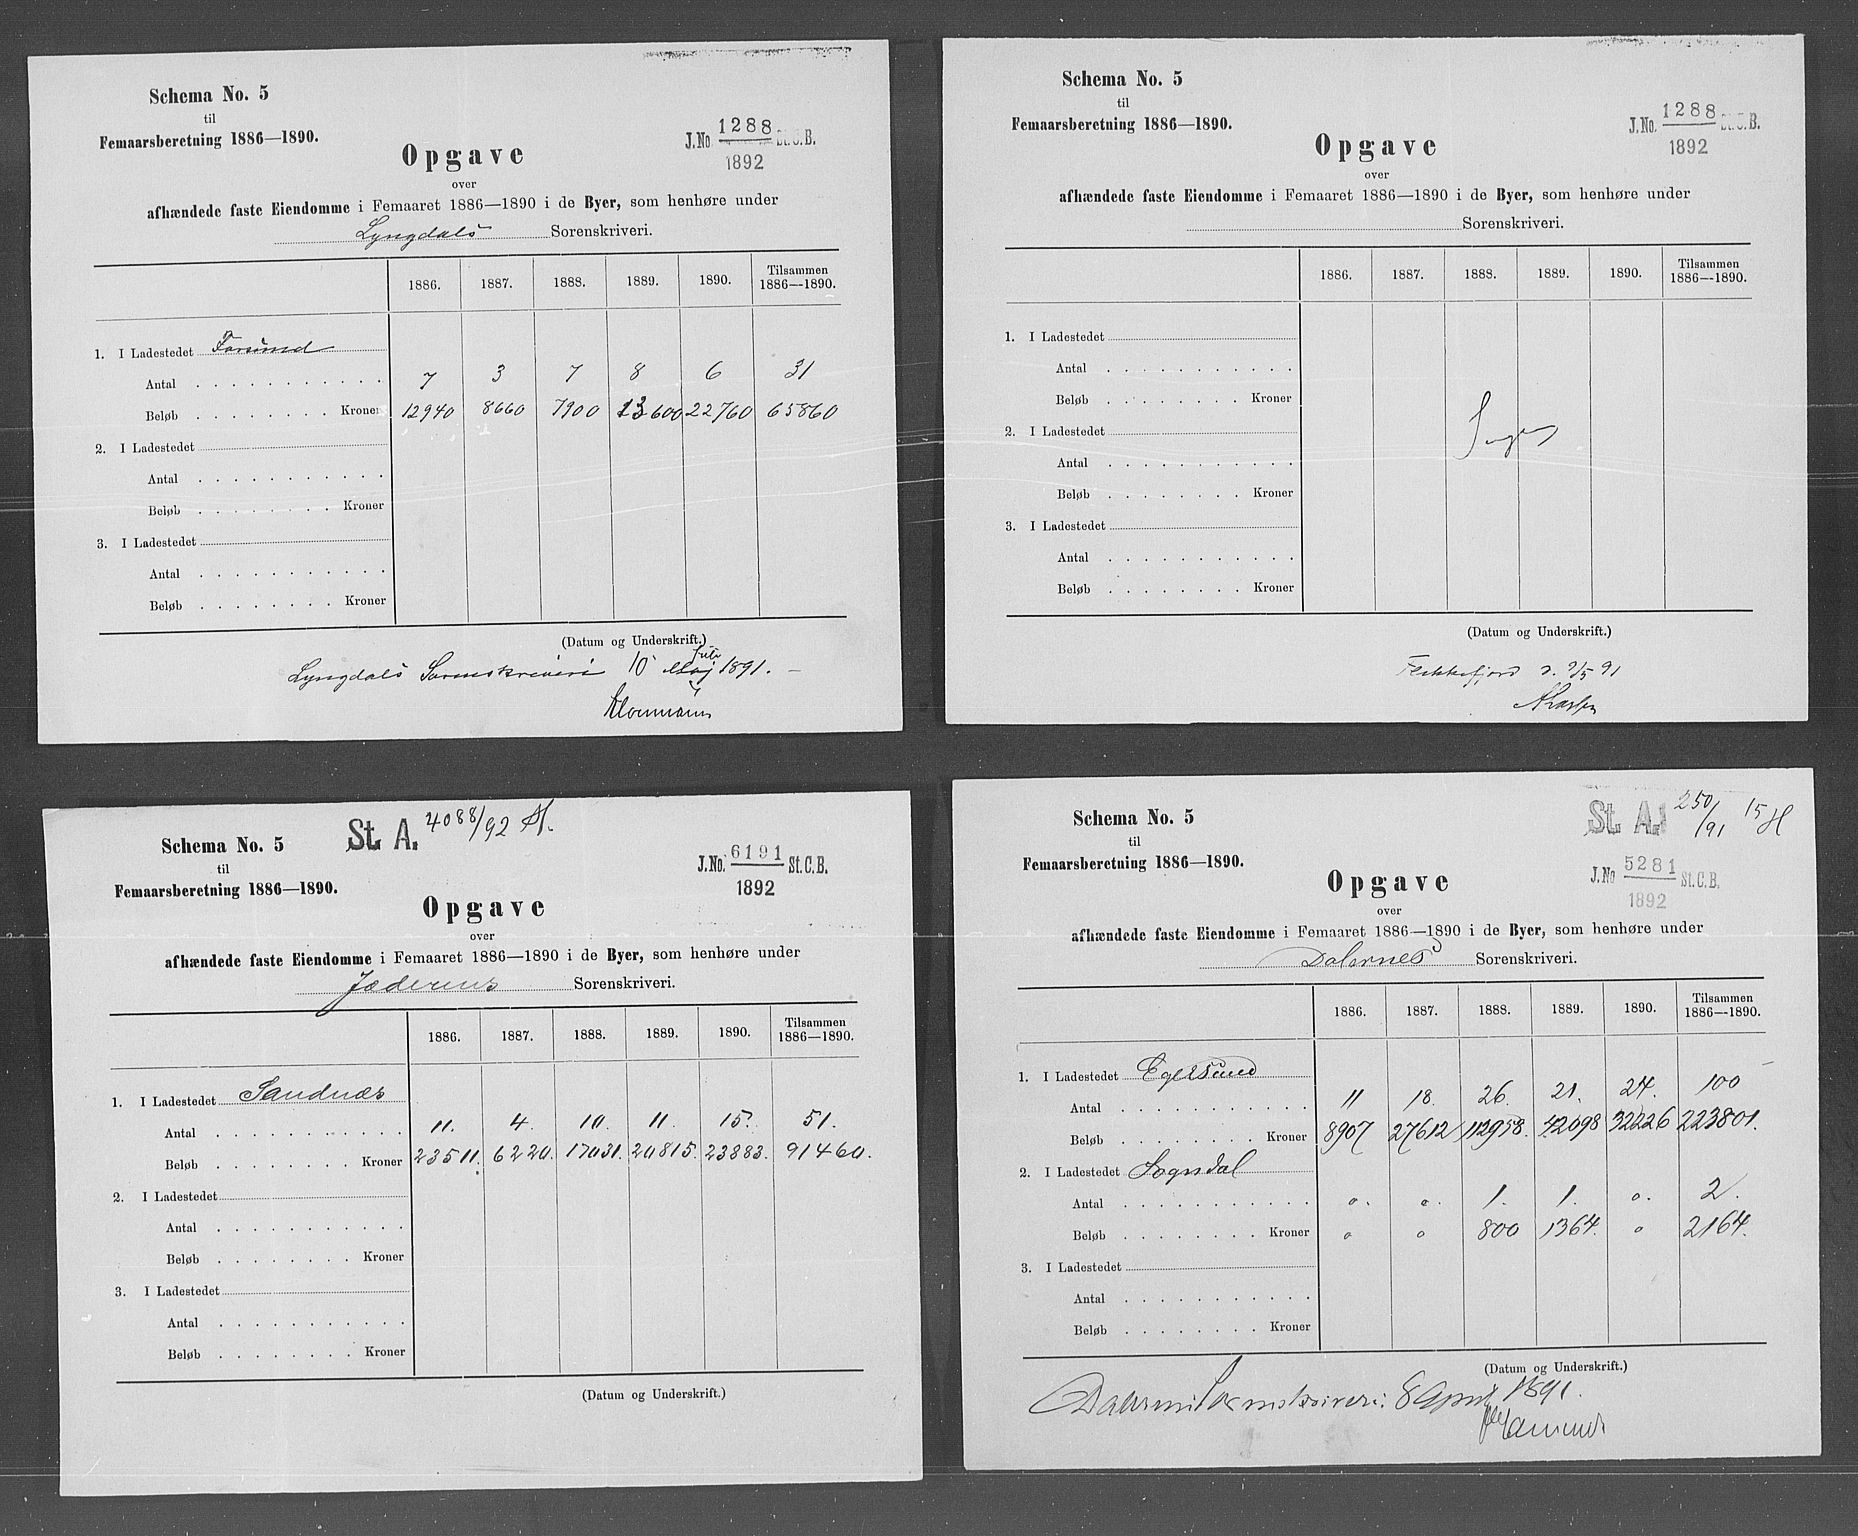 Schema No. 5
til
Femaarsberetning 1886—1890.
J.No. 1288 St.C.B.
1892
Opgave
over
afhændede faste Eiendomme i Femaaret 1886—1890 i de Byer, som henhøre under
Lyngdals Sorenskriveri.
1886. 1887. 1888. 1889. 1890. Tilsammen 1886—1890.
1. I Ladestedet Farsund
Antal 7 3 7 8 6 31
Beløb Kroner 12940 8660 7900 13600 22760 65860
2. I Ladestedet
Antal
Beløb Kroner
3. I Ladestedet
Antal
Beløb Kroner
(Datum og Underskrift.)
Lyngdals Sorenskriveri 10 Juli 1891.
Schema No. 5
til
Femaarsberetning 1886—1890.
J.No. 1288 St.C.B.
1892
Opgave
over
afhændede faste Eiendomme i Femaaret 1886—1890 i de Byer, som henhøre under
Sorenskriveri.
1886. 1887. 1888. 1889. 1890. Tilsammen 1886—1890.
1. I Ladestedet
Antal
Beløb Kroner
2. I Ladestedet
Antal
Beløb Kroner
3. I Ladestedet
Antal
Beløb Kroner
Ingen
(Datum og Underskrift.)
Flekkefjord d. 2/5 91
St. A. 4088/92
Schema No. 5
til
Femaarsberetning 1886—1890.
J.No. 6191 St.C.B.
1892
Opgave
over
afhændede faste Eiendomme i Femaaret 1886—1890 i de Byer, som henhøre under
Jæderens Sorenskriveri.
1886. 1887. 1888. 1889. 1890. Tilsammen 1886—1890.
1. I Ladestedet Sandnæs
Antal 11. 4. 10. 11. 15. 51.
Beløb Kroner 23511. 6220. 17031. 20815. 23883. 91460.
2. I Ladestedet
Antal
Beløb Kroner
3. I Ladestedet
Antal
Beløb Kroner
(Datum og Underskrift.)
St. A. 250/91 15
Schema No. 5
til
Femaarsberetning 1886—1890.
J.No 5281 St.C.B.
1892
Opgave
over
afhændede faste Eiendomme i Femaaret 1886—1890 i de Byer, som henhøre under
Dalernes Sorenskriveri.
1886. 1887. 1888. 1889. 1890. Tilsammen 1886—1890.
1. I Ladestedet Egersund
Antal 11 18. 26. 21. 24. 100
Beløb Kroner 8907 27612 112958. 42098 32226 223801.
2. I Ladestedet Sogndal
Antal o. o. 1. 1. o. 2.
Beløb Kroner o o 800 1364. o 2164.
3. I Ladestedet
Antal
Beløb Kroner
(Datum og Underskrift.)
Dalernes Sorenskriveri. 8 April 1891.